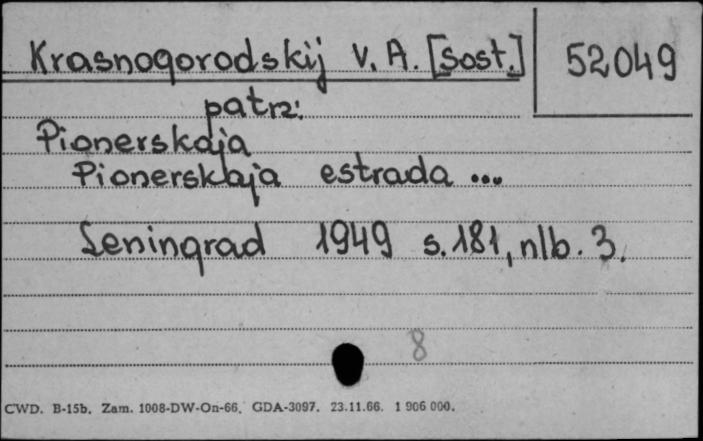 Krasnogorodskij V. A. [Sost.]
52049
patrz:
Pionerskaja
Pionerskaja estrada ...
Leningrad 1949 s. 181, nlb. 3.
8
CWD. B-15b. Zam. 1008-DW-On-66. GDA-3097. 23.11.66. 1 906 000.